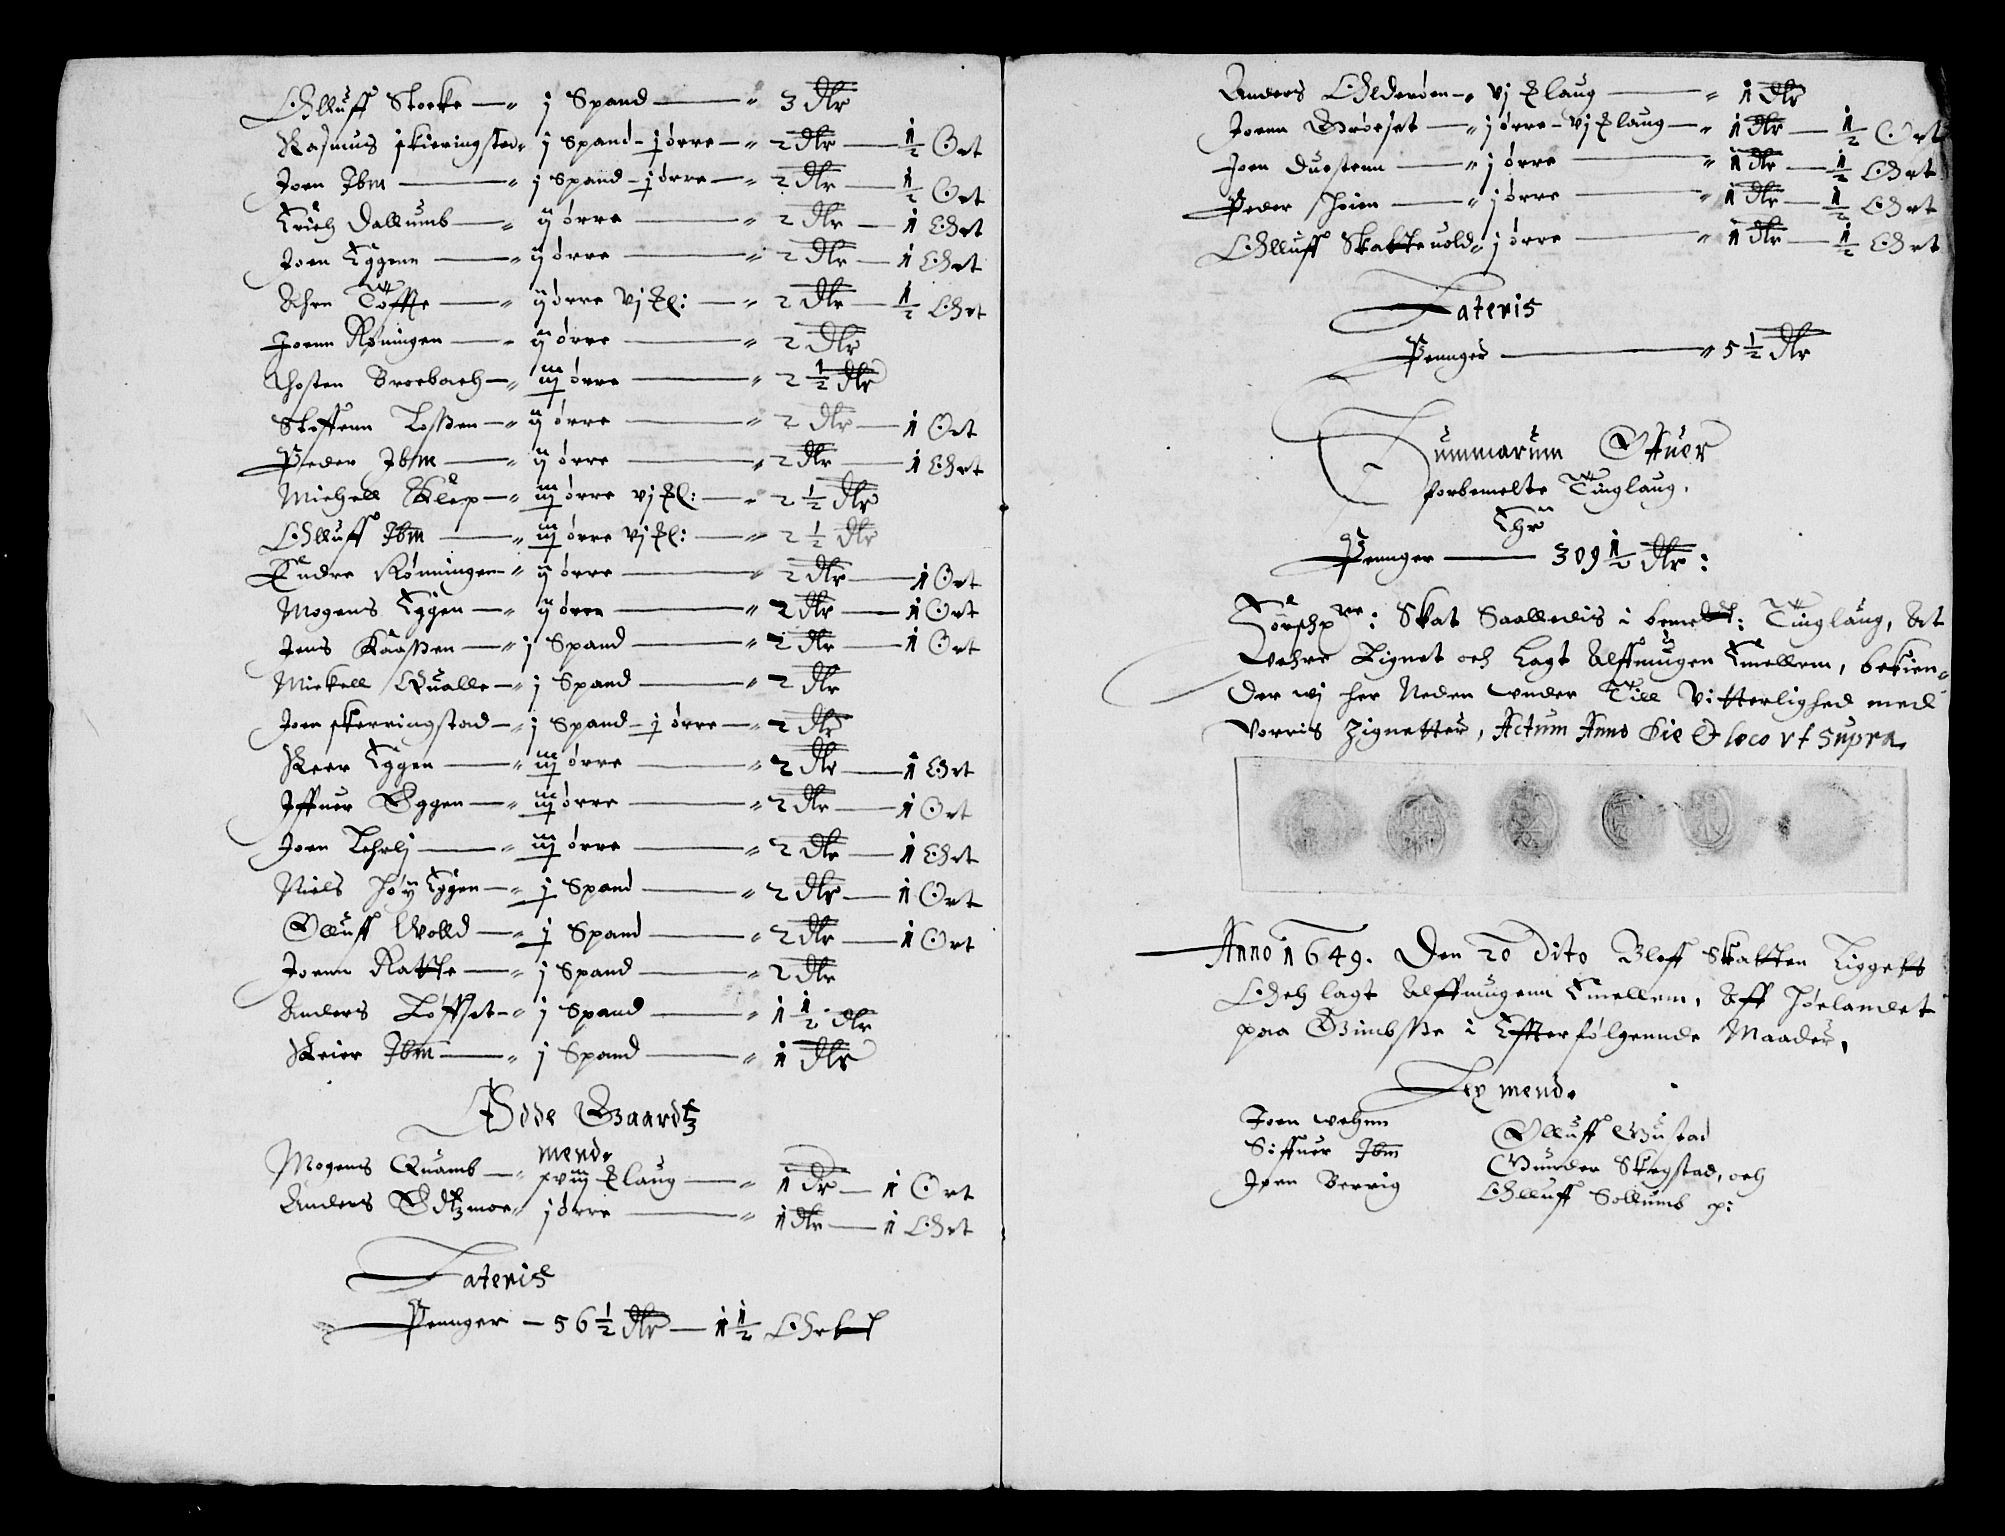 Olluff Stocke — j Spand — 3 dlr
Rasmus skieringstad j Spand - j ørre — 2 dlr — ½ Ort
Joen Ibm — j Spand - j ørre — 2 dlr — ½ Ort
Erich Dallumb — ij ørre — 2 dlr — 1 Ort
Joen Eggenn — ij ørre — 2 dlr — 1 Ort
Ahrn Tøffte — ij ørre vj ₰l: — 2 dlr — ½ Ort
Joenn Røningen — ij ørre — 2 dlr
Thosten Broebach — iij ørre — 2 ½ dlr
Steffenn Loßen — ij ørre — 2 dlr — 1 Ort
Peder Ibm — ij ørre — 2 dlr — 1 Ort
Michell Klep — iij ørre vj ₰l: — 2 ½ dlr
Olluff Ibm — iij ørre vj ₰l: — 2 ½ dlr
Endre Rønningen — ij ørre — 2 dlr — 1 Ort
Mogens Eggen — ij ørre — 2 dlr — 1 Ort
Jens Kaaßen — j Spand — 2 dlr — 1 Ort
Mickell Qualle — j Spand — 2 dlr
Joen skerringstad — j Spand - j ørre — 2 dlr
Reer Eggen — iij ørre — 2 dlr — 1 Ort
Iffuer Eggen — iij ørre — 2 dlr — 1 Ort
Joen Lehrlj — iij ørre — 2 dlr — 1 Ort
Niels Høy Eggen — j Spand — 2 dlr — 1 Ort
Olluff Wolld — j Spand — 2 dlr — 1 Ort
Joenn Ratte — j Spand — 2 dlr
Anders Løffset — j Spand — 1 ½ dlr
Reier Ibm — j Spand — 1 dlr
Øde Gaardtz
mend.
Mogens Quamb — xviij ₰laug — 1 dlr — 1 Ort
Anders Ødtzmoe j ørre — 1 dlr — 1 Ort
Lateris
Pennger — 56 ½ dlr — 1 ½ Ort
Anders Olderøen — vj ₰laug — 1 dlr
Joenn Grøeset — j ørre - vj ₰laug — 1 dlr — ½ Ort
Joen Duostenn — j ørre — 1 dlr — ½ Ort
Peder Høien — j ørre — 1 dlr — ½ Ort
Olluff Skatteuold j ørre — 1 dlr — ½ Ort
Lateris
Pennger — 5 ½ dlr
Summarum Offuer
forbemelte Tinglaug.
Ehr
Pennger — 309 ½ dlr:
Skat Saalledis i bemelt: Tinglaug, At
Wehre Lignet och Lagt Alffmugen Emellem, bekien-
der wj her Neden wnder Till Vitterlighed med
Vorris Zignetter, Actum Anno Die & loco vt Supra.
Anno 1649. Den 20 Dito Bleff Skatten Liggetts
Och lagt Alffmugenn Emellem, Aff Høelandet
paa Gimbsße i Effterfølgennde Maader,
Lex mend.
Joen wehnn
Siffuer Ibm
Joen Berrig
Olluff Gustad
Gunder Skegstad, och
Olluff Sollumb p: